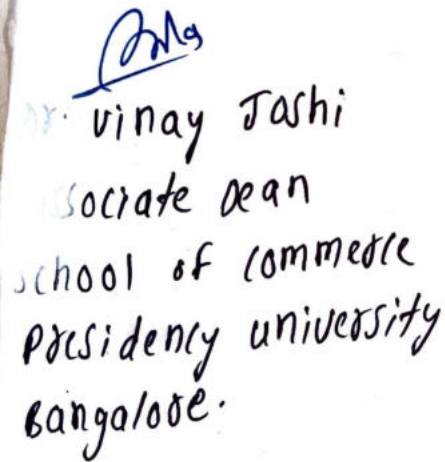 Dr. Vinay Joshi
Associate Dean
School of Commerce
Presidency University
Bangalore.